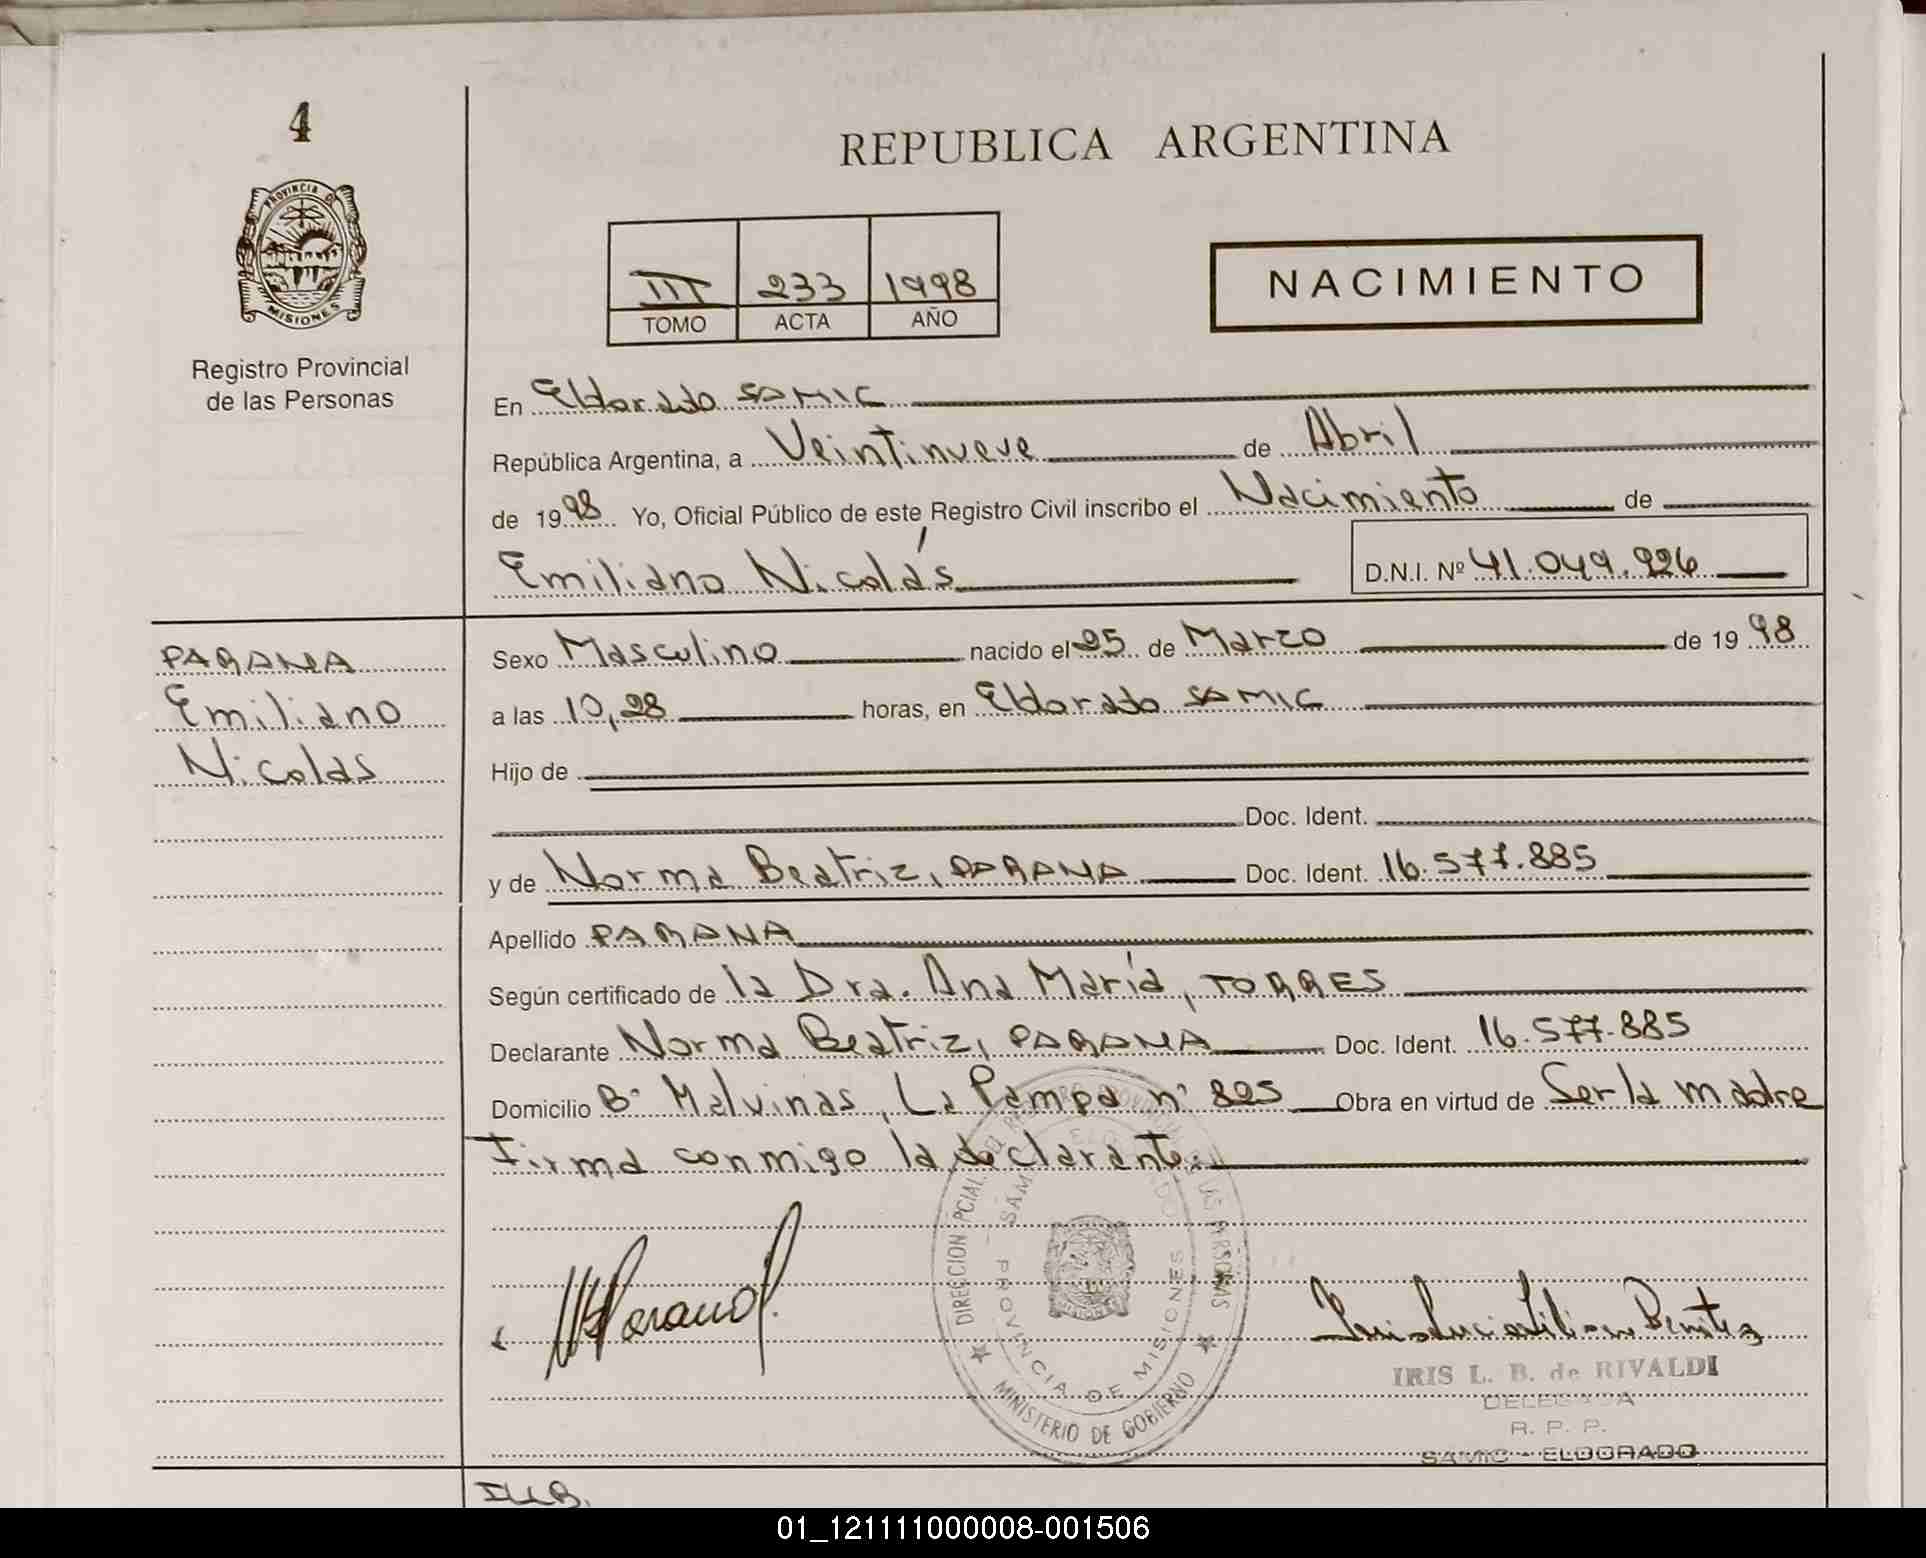 4
PROVINCIA DE
MISIONES
Registro Provincial
de las Personas
REPUBLICA ARGENTINA
III 233 1998
TOMO ACTA AÑO
NACIMIENTO
En Eldorado SAMIC
República Argentina, a Veintinueve de Abril
de 1998 Yo, Oficial Público de este Registro Civil inscribo el Nacimiento de
Emiliano Nicolás D.N.I. Nº 41.049.926
PARANA
Emiliano
Nicolas
Sexo Masculino nacido el 25 de Marzo de 1998
a las 10,28 horas, en Eldorado SAMIC
Hijo de
Doc. Ident.
y de Norma Beatriz, PARANA Doc. Ident. 16.577.885
Apellido PARANA
Según certificado de la Dra. Ana María, TORRES
Declarante Norma Beatriz, PARANA Doc. Ident. 16.577.885
Domicilio Bº Malvinas, La Pampa nº 825 Obra en virtud de Ser la madre
Firma conmigo la declarante.
DIRECCION PCIAL. DEL REGISTRO PROVINCIAL DE LAS PERSONAS
SAMIC ELDORADO
PROVINCIA DE MISIONES
MINISTERIO DE GOBIERNO
IRIS L. B. de RIVALDI
DELEGADA
R. P. P.
SAMIC - ELDORADO
01_121111000008-001506